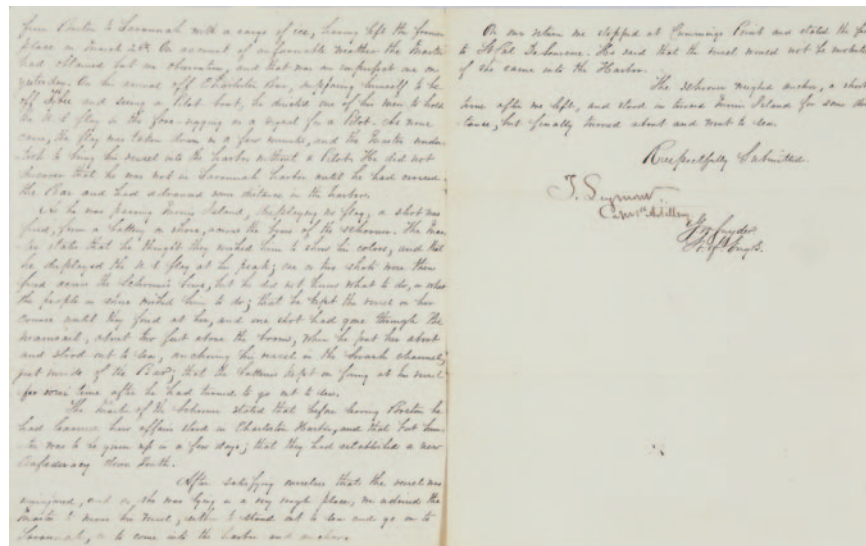 from Boston to Savannah with a cargo of ice, having left the former
place on March 28th. On account of unfavorable weather the Master
had obtained but one observation, and that was an imperfect one on
yesterday. On his arrival off Charleston Bar, supposing himself to be
off Tybee and seeing a Pilot boat, he directed one of his men to hold
the U S flag in the fore-rigging as a signal for a Pilot. As none
came, the flag was taken down in a few minutes, and the Master under-
took to bring his vessel into the harbor without a Pilot. He did not
discover that he was not in Savannah harbor until he had crossed
the Bar and had advanced some distance in the harbor.
As he was passing Morris Island, displaying no flag, a shot was
fired, from a battery on shore, across the bows of the schooner. The mas-
ter states that he thought they wished him to show his colors, and that
he displayed the U S flag at his peak; one or two shots were then
fired across the Schooner's bows, but he did not know what to do, or what
the people on shore wished him to do; that he kept the vessel on her
course until they fired at her, and one shot had gone through the
mainsail, about two feet above the boom, when he put her about
and stood out to sea, anchoring his vessel in the Swash channel,
just inside of the Bar; that the batteries kept on firing at his vessel
for some time after he had turned to go out to sea.
The Master of the Schooner stated that before leaving Boston he
had learned how affairs stood in Charleston Harbor, and that Fort Sum-
ter was to be given up in a few days; that they had established a new
Confederacy down South.
After satisfying ourselves that the vessel was
uninjured, and as she was lying in a very rough place, we advised the
Master to move his vessel, either to stand out to sea and go on to
Savannah, or to come into the harbor and anchor.
On our return we stopped at Cummings Point and stated the
to Lt Col. DeSaussure. He said that the vessel would not be molested
if she came into the Harbor.
The schooner weighed anchor, a short
time after we left, and stood in toward Morris Island for some dis-
tance, but finally turned about and went to sea.
Respectfully Submitted.
T. Seymour
Capt 1st Artillery
G W Snyder
Lt of Engrs.